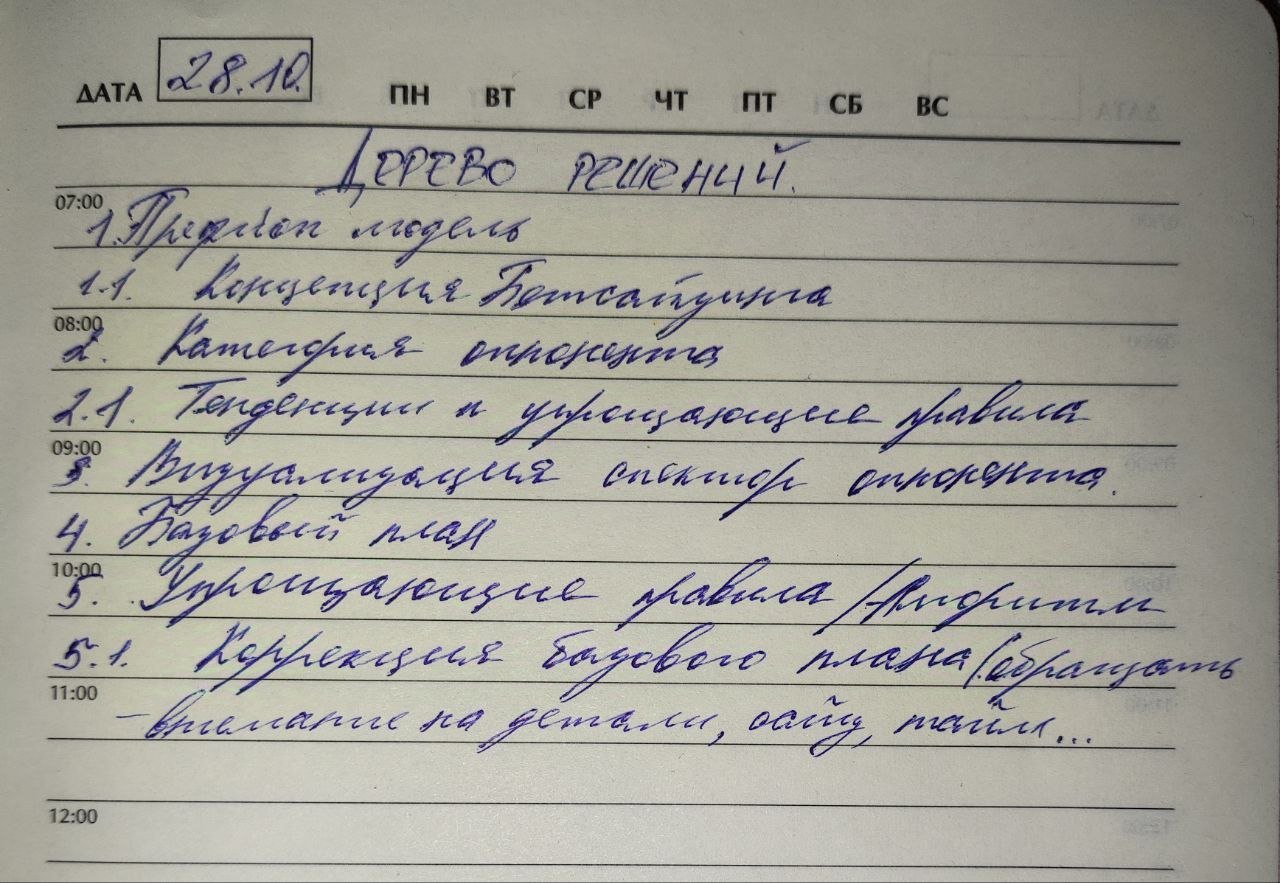 ДАТА 28.10. ПН ВТ СР ЧТ ПТ СБ ВС
Дерево решений.
07:00
1. Префлоп модель
1.1. Концепция Бетсайдинга
08:00
2. Категория оппонента
2.1. Тенденции и упрощающие правила
09:00
3. Визуализация спектор оппонента.
4. Базовый план
10:00
5. Упрощающие правила / Алгоритм
5.1. Коррекция базового плана (обращать
11:00
внимание на детали, сайз, тайм...
12:00